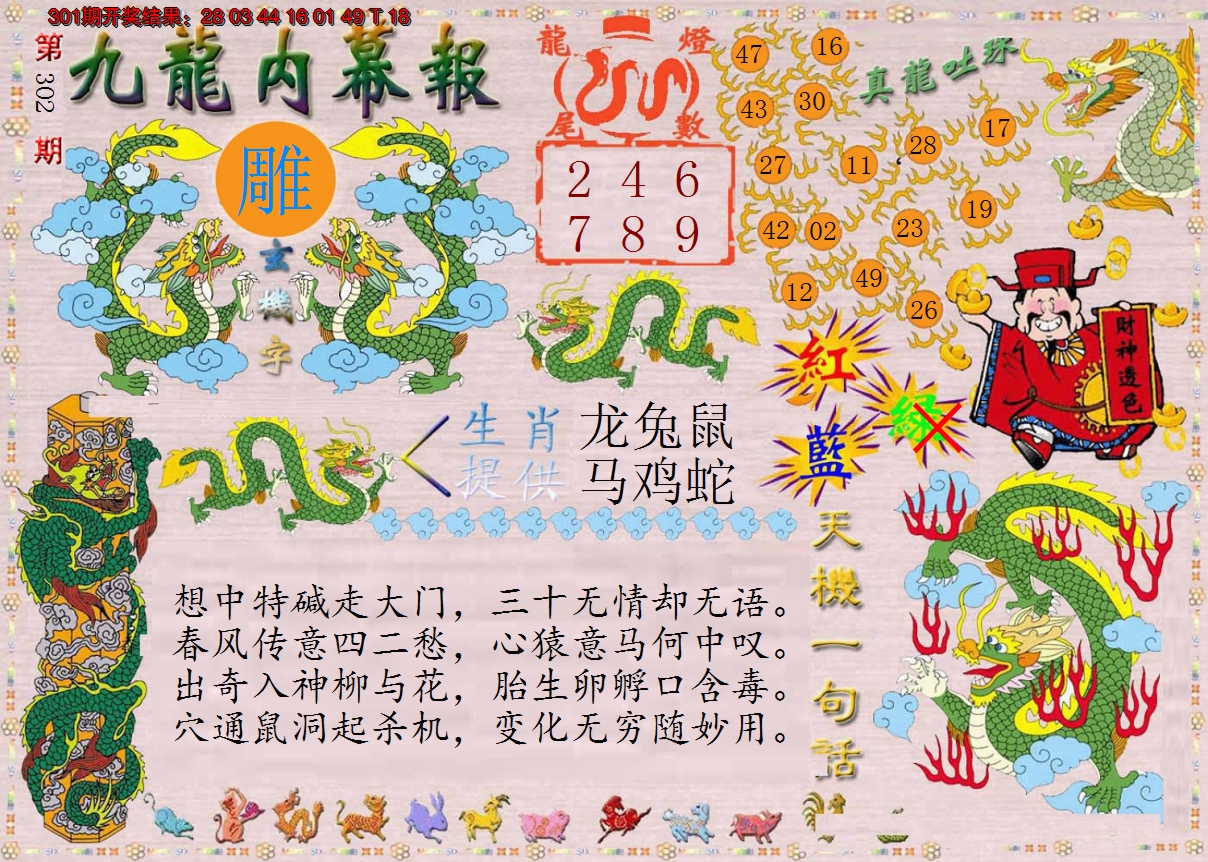 301期开奖结果：28 03 44 16 01 49 T 18
第302期
九龍内幕報
雕
玄機字
龍燈
尾數
2 4 6
7 8 9
真龍吐珠
47 16
43 30
27 11 28 17
42 02 23 19
12 49 26
紅
綠
藍
財神透色
生肖提供
龙兔鼠
马鸡蛇
天機一句話
想中特碱走大门，三十无情却无语。
春风传意四二愁，心猿意马何中叹。
出奇入神柳与花，胎生卵孵口含毒。
穴通鼠洞起杀机，变化无穷随妙用。